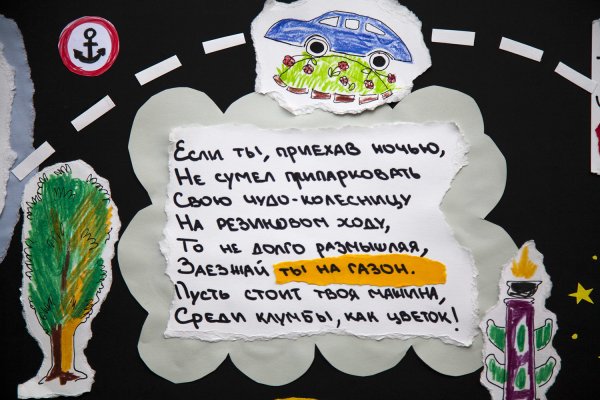 Если ты, приехав ночью,
Не сумел припарковать
Свою чудо-колесницу
На резиновом ходу,
То не долго размышляя,
Заезжай ты на газон.
Пусть стоит твоя машина,
Среди клумбы, как цветок!